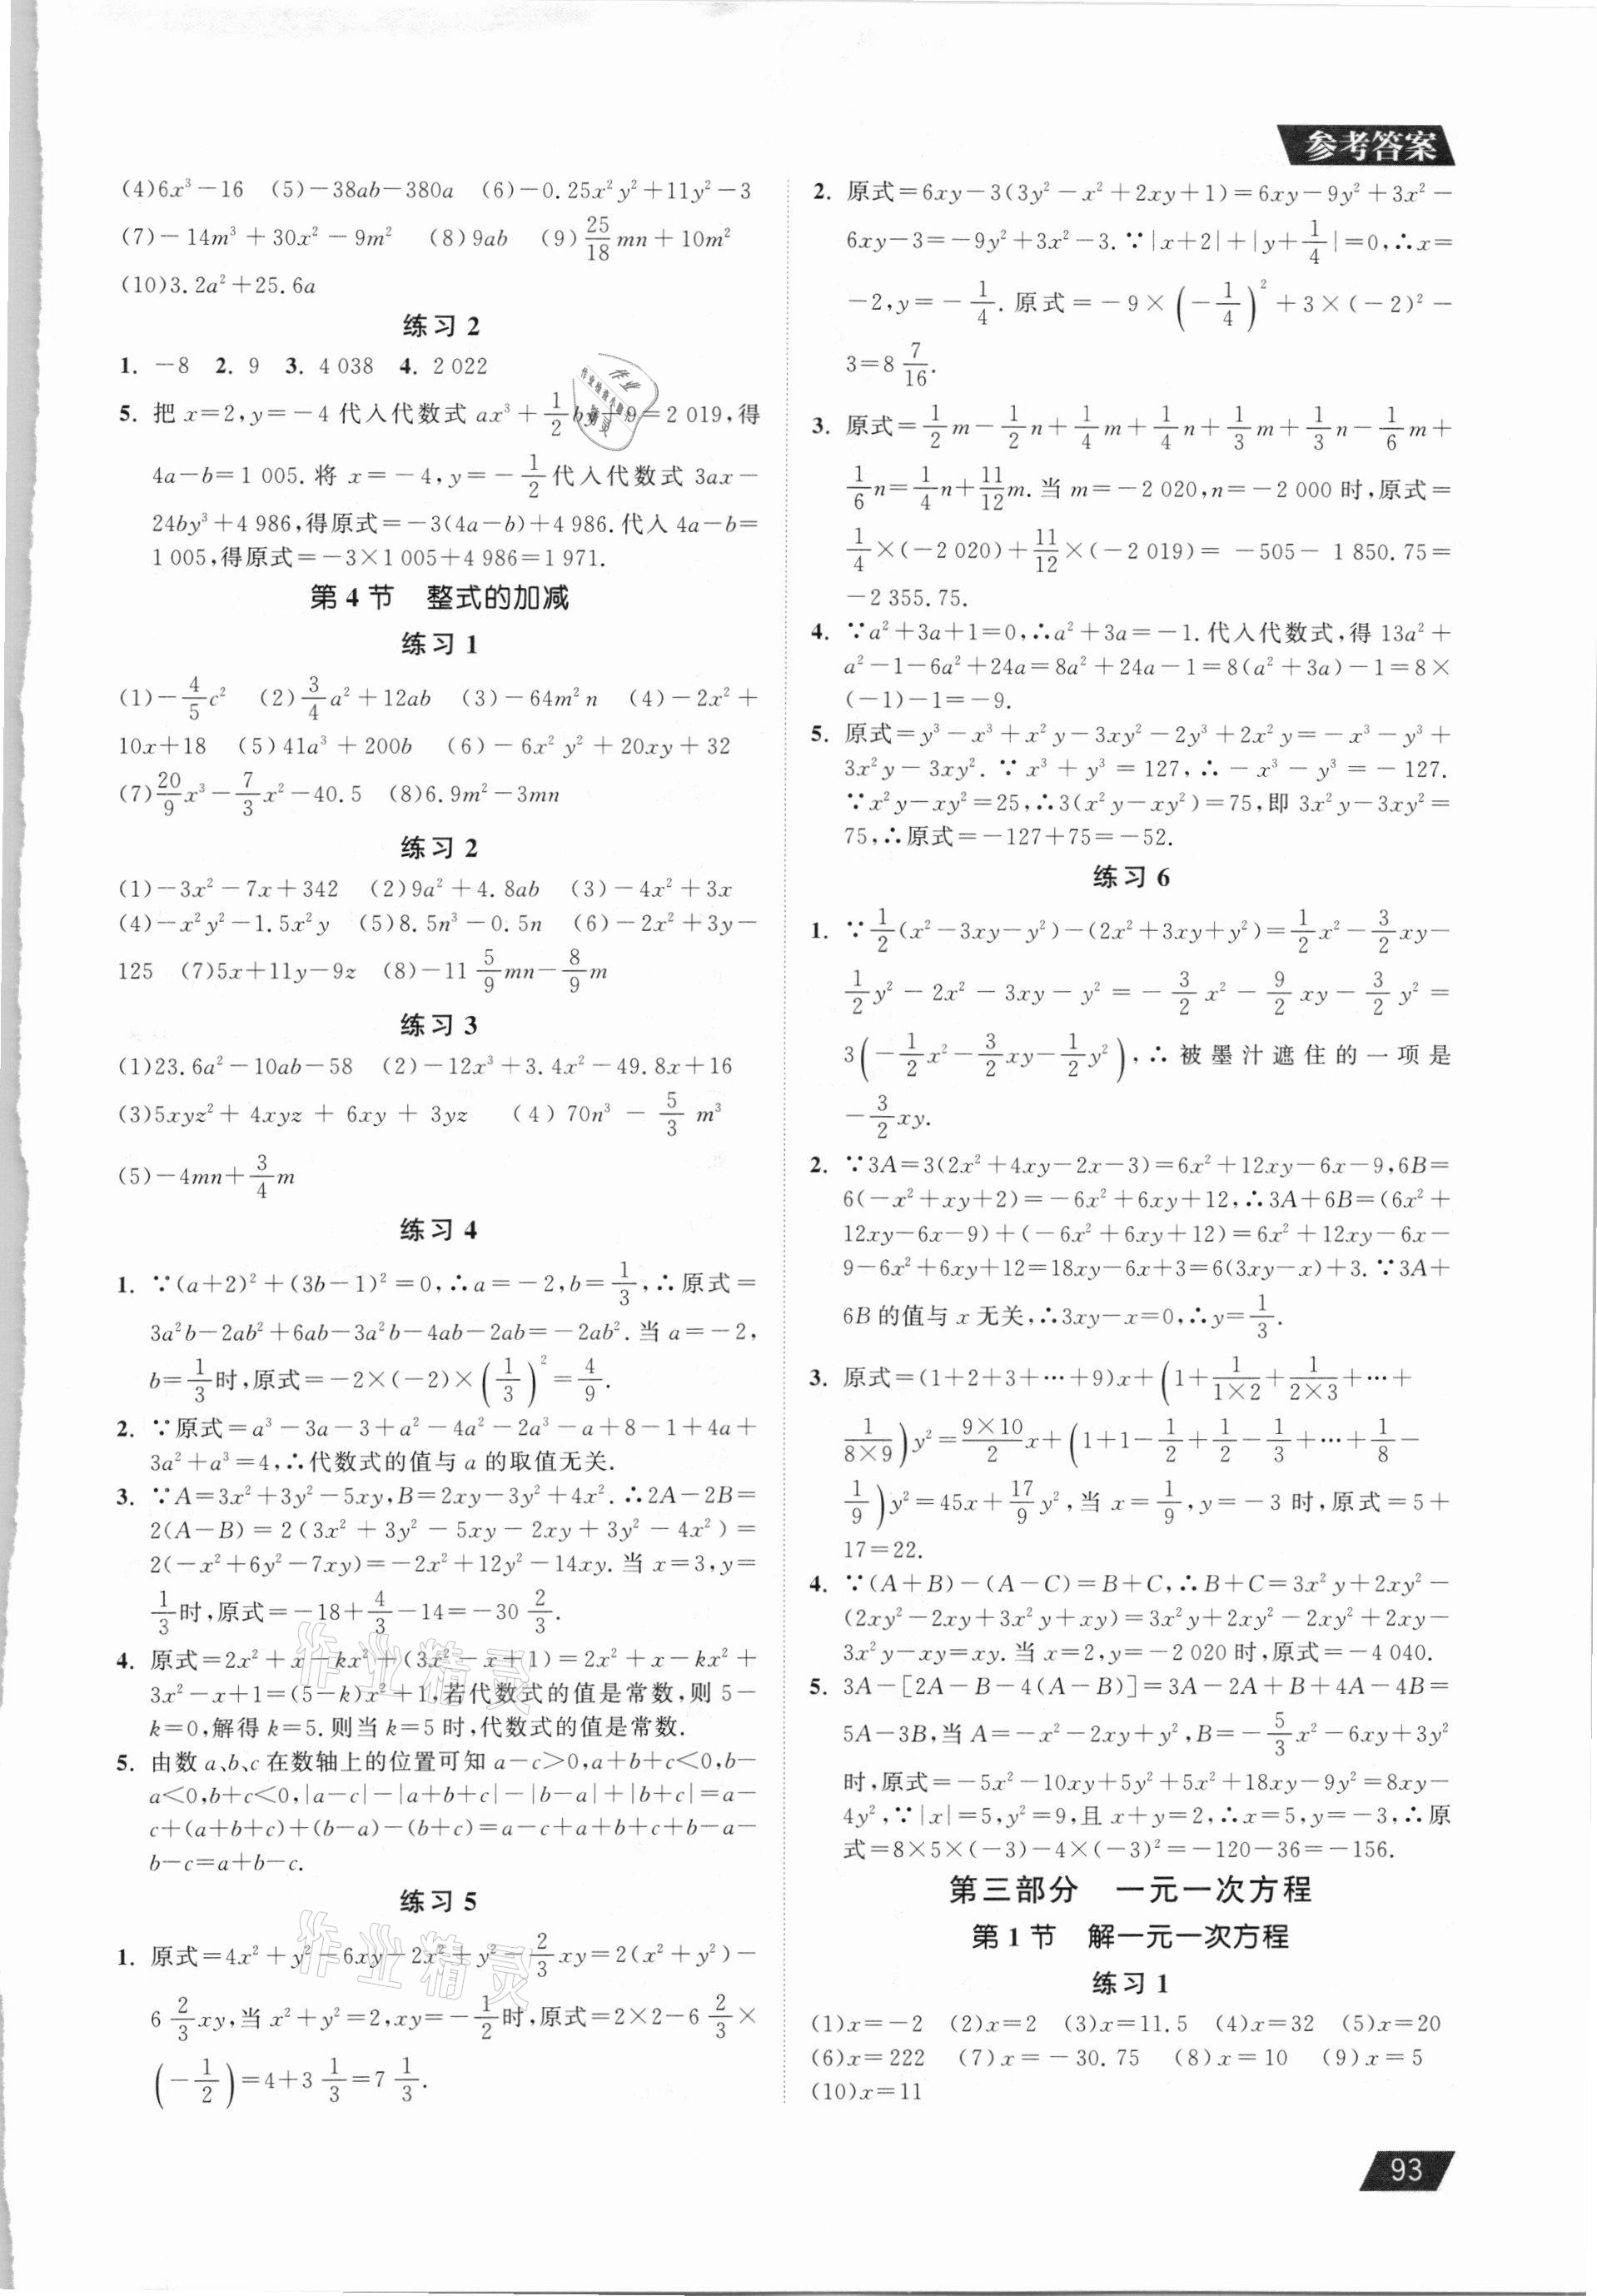 参考答案
(4)6x³－16 (5)－38ab－380a (6)－0.25x²y²＋11y²－3
(7)－14m³＋30x²－9m² (8)9ab (9)25/18mn＋10m²
(10)3.2a²＋25.6a
练习 2
1. －8 2. 9 3. 4 038 4. 2 022
5. 把 x＝2,y＝－4 代入代数式 ax³＋1/2by＋9＝2 019,得
4a－b＝1 005.将 x＝－4,y＝－1/2代入代数式 3ax－
24by³＋4 986,得原式＝－3(4a－b)＋4 986.代入 4a－b＝
1 005,得原式＝－3×1 005＋4 986＝1 971.
第 4 节 整式的加减
练习 1
(1)－4/5c² (2)3/4a²＋12ab (3)－64m²n (4)－2x²＋
10x＋18 (5)41a³＋200b (6)－6x²y²＋20xy＋32
(7)20/9x³－7/3x²－40.5 (8)6.9m²－3mn
练习 2
(1)－3x²－7x＋342 (2)9a²＋4.8ab (3)－4x²＋3x
(4)－x²y²－1.5x²y (5)8.5n³－0.5n (6)－2x²＋3y－
125 (7)5x＋11y－9z (8)－11 5/9mn－8/9m
练习 3
(1)23.6a²－10ab－58 (2)－12x³＋3.4x²－49.8x＋16
(3)5xyz²＋4xyz＋6xy＋3yz (4)70n³－5/3m³
(5)－4mn＋3/4m
练习 4
1. ∵(a＋2)²＋(3b－1)²＝0,∴a＝－2,b＝1/3,∴原式＝
3a²b－2ab²＋6ab－3a²b－4ab－2ab＝－2ab².当 a＝－2,
b＝1/3时,原式＝－2×(－2)×(1/3)²＝4/9.
2. ∵原式＝a³－3a－3＋a²－4a²－2a³－a＋8－1＋4a＋
3a²＋a³＝4,∴代数式的值与 a 的取值无关.
3. ∵A＝3x²＋3y²－5xy,B＝2xy－3y²＋4x².∴2A－2B＝
2(A－B)＝2(3x²＋3y²－5xy－2xy＋3y²－4x²)＝
2(－x²＋6y²－7xy)＝－2x²＋12y²－14xy.当 x＝3,y＝
1/3时,原式＝－18＋4/3－14＝－30 2/3.
4. 原式＝2x²＋x－kx²＋(3x²－x＋1)＝2x²＋x－kx²＋
3x²－x＋1＝(5－k)x²＋1,若代数式的值是常数,则 5－
k＝0,解得 k＝5.则当 k＝5 时,代数式的值是常数.
5. 由数 a、b、c 在数轴上的位置可知 a－c＞0,a＋b＋c＜0,b－
a＜0,b＋c＜0,|a－c|－|a＋b＋c|－|b－a|＋|b＋c|＝a－
c＋(a＋b＋c)＋(b－a)－(b＋c)＝a－c＋a＋b＋c＋b－a－
b－c＝a＋b－c.
练习 5
1. 原式＝4x²＋y²－6xy－2x²＋y²－2/3xy＝2(x²＋y²)－
6 2/3xy,当 x²＋y²＝2,xy＝－1/2时,原式＝2×2－6 2/3×
(－1/2)＝4＋3 1/3＝7 1/3.
2. 原式＝6xy－3(3y²－x²＋2xy＋1)＝6xy－9y²＋3x²－
6xy－3＝－9y²＋3x²－3.∵|x＋2|＋|y＋1/4|＝0,∴x＝
－2,y＝－1/4.原式＝－9×(－1/4)²＋3×(－2)²－
3＝8 7/16.
3. 原式＝1/2m－1/2n＋1/4m＋1/4n＋1/3m＋1/3n－1/6m＋
1/6n＝1/4n＋11/12m.当 m＝－2 020,n＝－2 000 时,原式＝
1/4×(－2 020)＋11/12×(－2 019)＝－505－1 850.75＝
－2 355.75.
4. ∵a²＋3a＋1＝0,∴a²＋3a＝－1.代入代数式,得 13a²＋
a²－1－6a²＋24a＝8a²＋24a－1＝8(a²＋3a)－1＝8×
(－1)－1＝－9.
5. 原式＝y³－x³＋x²y－3xy²－2y³＋2x²y＝－x³－y³＋
3x²y－3xy².∵x³＋y³＝127,∴－x³－y³＝－127.
∵x²y－xy²＝25,∴3(x²y－xy²)＝75,即 3x²y－3xy²＝
75,∴原式＝－127＋75＝－52.
练习 6
1. ∵1/2(x²－3xy－y²)－(2x²＋3xy＋y²)＝1/2x²－3/2xy－
1/2y²－2x²－3xy－y²＝－3/2x²－9/2xy－3/2y²＝
3(－1/2x²－3/2xy－1/2y²),∴被墨汁遮住的一项是
－3/2xy.
2. ∵3A＝3(2x²＋4xy－2x－3)＝6x²＋12xy－6x－9,6B＝
6(－x²＋xy＋2)＝－6x²＋6xy＋12,∴3A＋6B＝(6x²＋
12xy－6x－9)＋(－6x²＋6xy＋12)＝6x²＋12xy－6x－
9－6x²＋6xy＋12＝18xy－6x＋3＝6(3xy－x)＋3.∵3A＋
6B 的值与 x 无关,∴3xy－x＝0,∴y＝1/3.
3. 原式＝(1＋2＋3＋…＋9)x＋(1＋1/1×2＋1/2×3＋…＋
1/8×9)y²＝9×10/2x＋(1＋1－1/2＋1/2－1/3＋…＋1/8－
1/9)y²＝45x＋17/9y²,当 x＝1/9,y＝－3 时,原式＝5＋
17＝22.
4. ∵(A＋B)－(A－C)＝B＋C,∴B＋C＝3x²y＋2xy²－
(2xy²－2xy＋3x²y＋xy)＝3x²y＋2xy²－2xy²＋2xy－
3x²y－xy＝xy.当 x＝2,y＝－2 020 时,原式＝－4 040.
5. 3A－[2A－B－4(A－B)]＝3A－2A＋B＋4A－4B＝
5A－3B,当 A＝－x²－2xy＋y²,B＝－5/3x²－6xy＋3y²
时,原式＝－5x²－10xy＋5y²＋5x²＋18xy－9y²＝8xy－
4y²,∵|x|＝5,y²＝9,且 x＋y＝2,∴x＝5,y＝－3,∴原
式＝8×5×(－3)－4×(－3)²＝－120－36＝－156.
第三部分 一元一次方程
第 1 节 解一元一次方程
练习 1
(1)x＝－2 (2)x＝2 (3)x＝11.5 (4)x＝32 (5)x＝20
(6)x＝222 (7)x＝－30.75 (8)x＝10 (9)x＝5
(10)x＝11
93
作业精灵
作业精灵